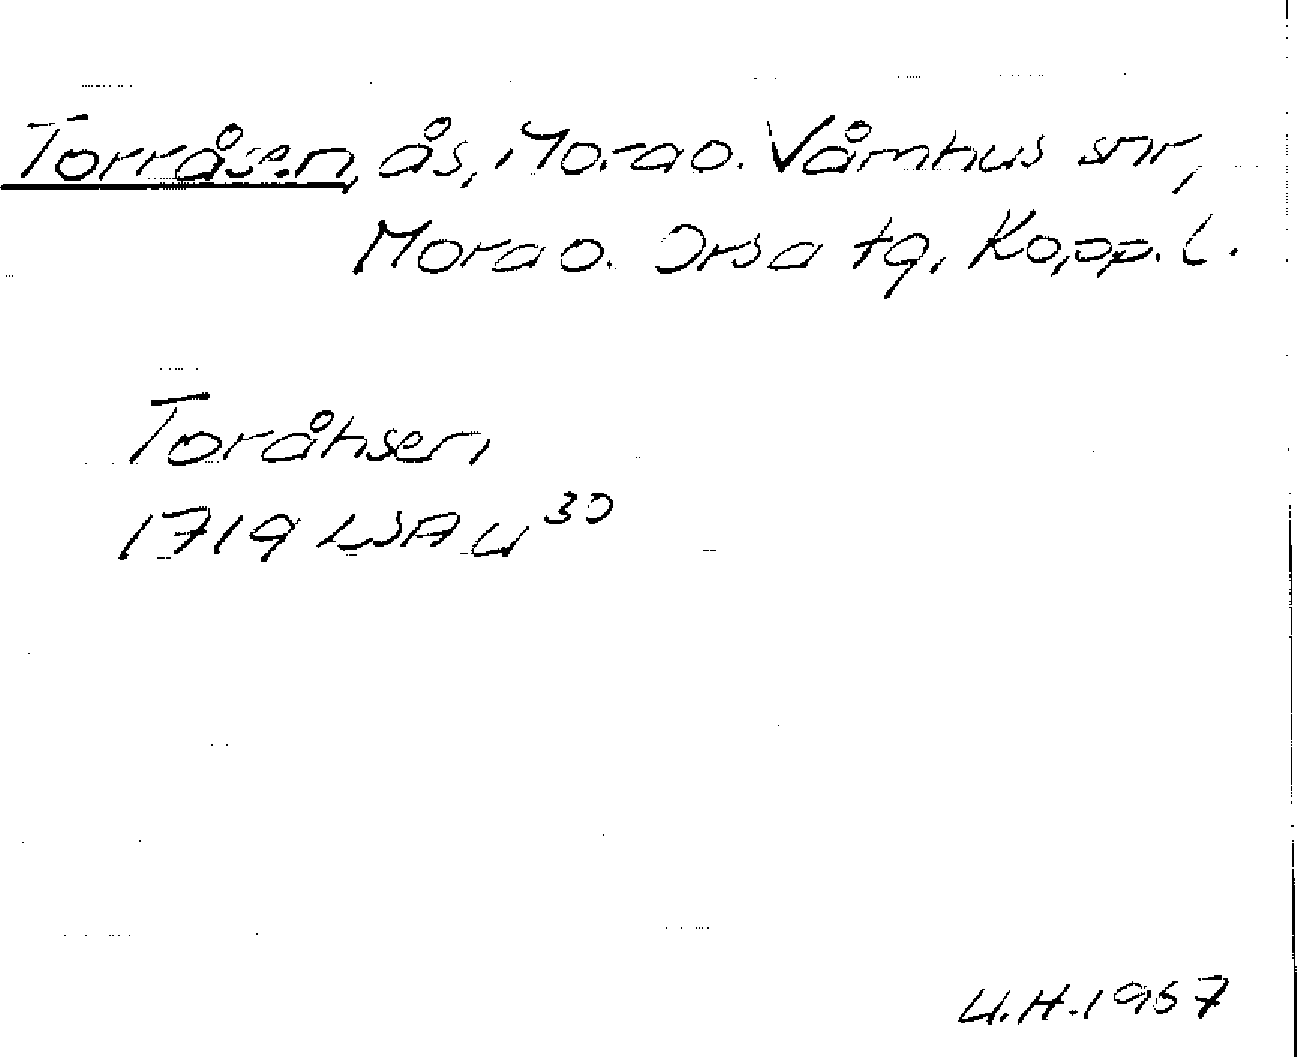 Torråsen, ås, Mora o. Våmhus snr,
Mora o. Orsa tg, Kopp. l.
Toråhsen
1719 LSA U³⁰
U.H. 1967